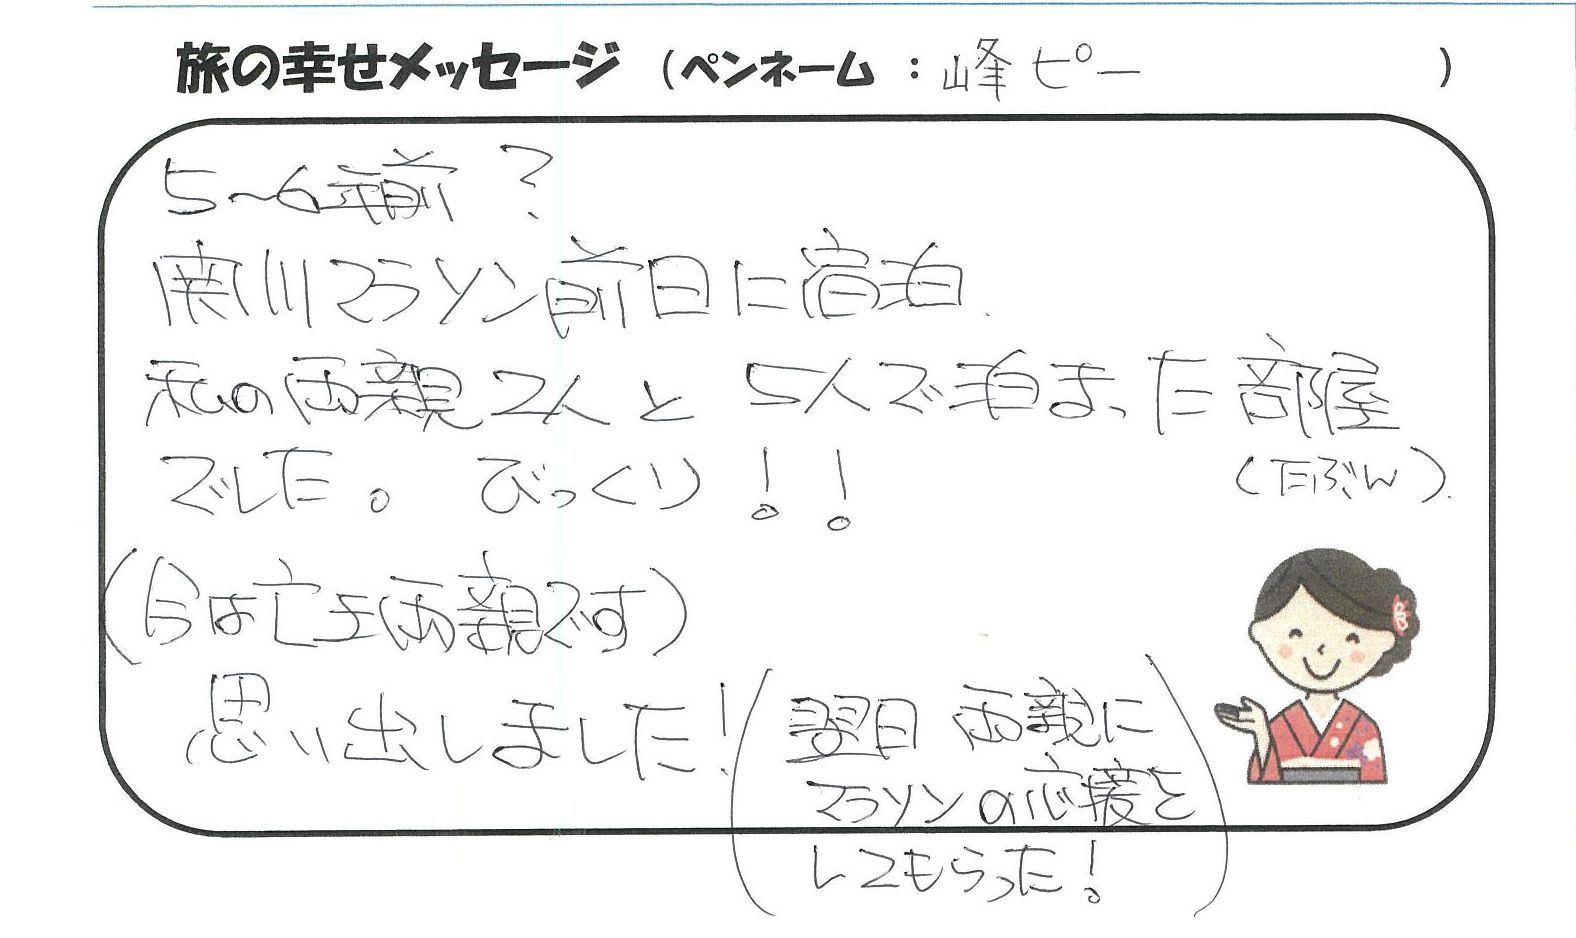 旅の幸せメッセージ (ペンネーム : 峰ピー )
5~6年前?
関川マラソン前日に宿泊.
私の両親2人と 5人で泊まった部屋
でした。 びっくり!!
(たぶん).
(今は亡き両親です)
思い出しました!
(翌日 両親に
マラソンの応援を
してもらった!)